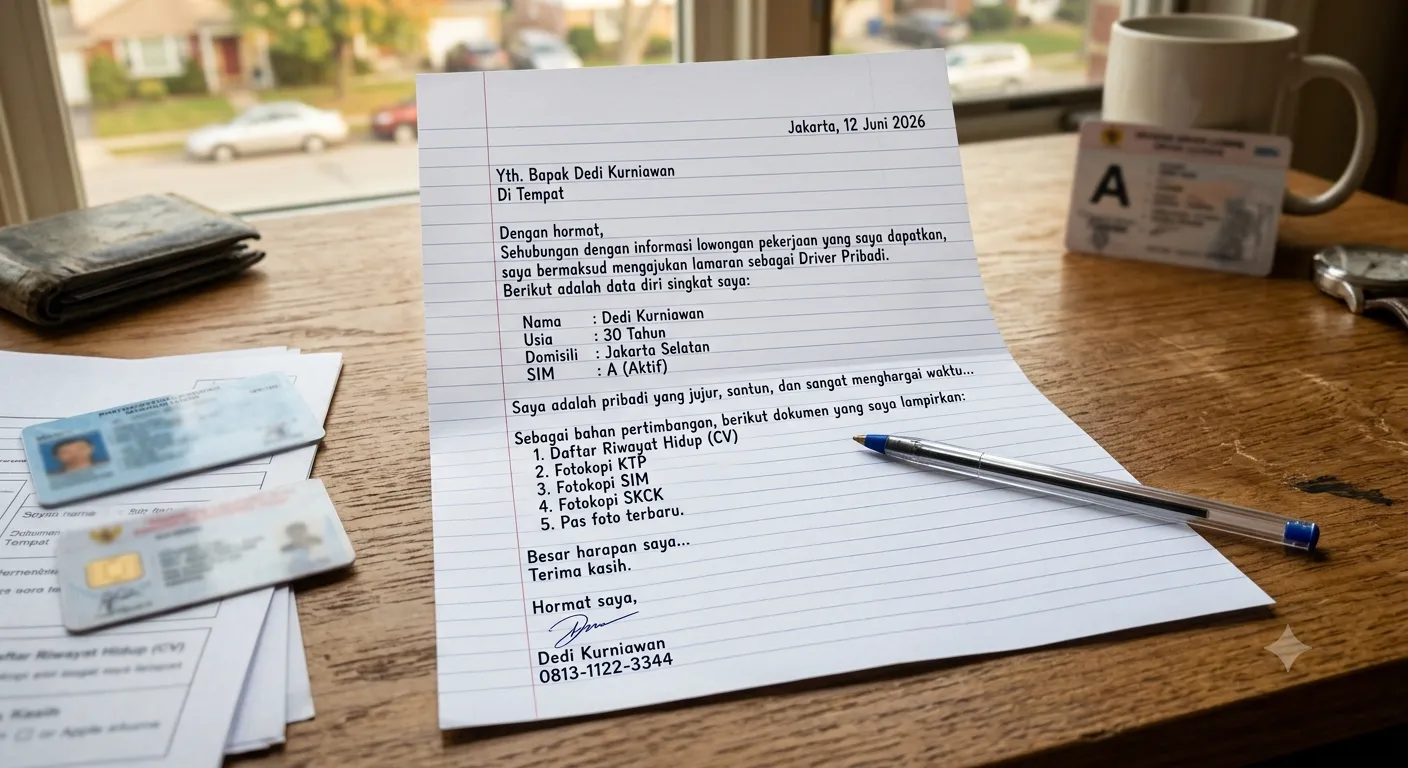 Jakarta, 12 Juni 2026
Yth. Bapak Dedi Kurniawan
Di Tempat
Dengan hormat,
Sehubungan dengan informasi lowongan pekerjaan yang saya dapatkan,
saya bermaksud mengajukan lamaran sebagai Driver Pribadi.
Berikut adalah data diri singkat saya:
Nama : Dedi Kurniawan
Usia : 30 Tahun
Domisili : Jakarta Selatan
SIM : A (Aktif)
Saya adalah pribadi yang jujur, santun, dan sangat menghargai waktu...
Sebagai bahan pertimbangan, berikut dokumen yang saya lampirkan:
1. Daftar Riwayat Hidup (CV)
2. Fotokopi KTP
3. Fotokopi SIM
4. Fotokopi SKCK
5. Pas foto terbaru.
Besar harapan saya...
Terima kasih.
Hormat saya,
Dedi Kurniawan
0813-1122-3344
A
Tempat
ftar Riwayat Hidup (CV)
Kasih